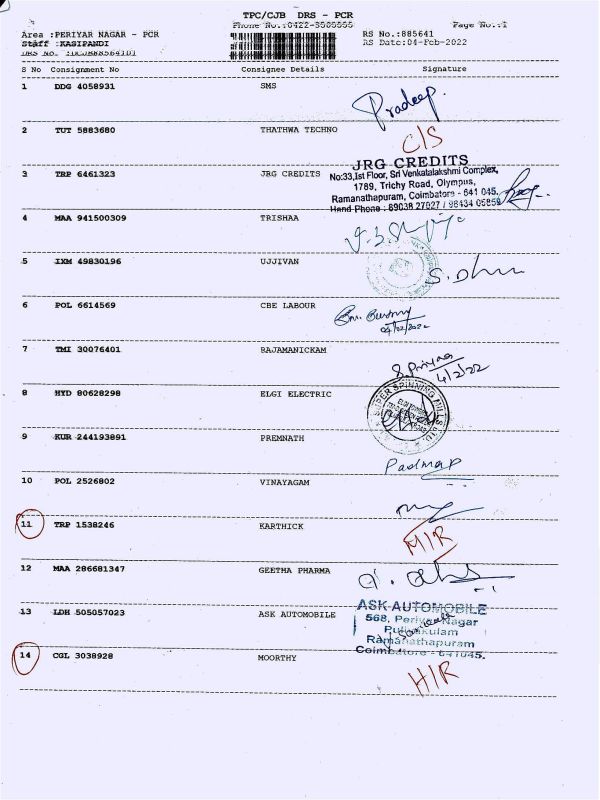 TPC/CJB DRS - PCR
Phone No.:0422-3505555
Page No.:1
Area :PERIYAR NAGAR - PCR
RS No.:885641
Staff :KASIPANDI
RS Date:04-Feb-2022
DRS No.
S No Consignment No Consignee Details Signature
1 DDG 4058931 SMS Pradeep.
2 TUT 5883680 THATHWA TECHNO C/S
3 TRP 6461323 JRG CREDITS
JRG CREDITS
No:33,Ist Floor, Sri Venkatalakshmi Complex,
1789, Trichy Road, Olympus,
Ramanathapuram, Coimbatore - 641 045.
Hand Phone : 89038 27027 / 98434 05859
4 MAA 941500309 TRISHAA
5 IXM 49830196 UJJIVAN
6 POL 6614569 CBE LABOUR
04/02/2022
7 TMI 30076401 RAJAMANICKAM S. Priyaa
4/2/22
8 HYD 80628298 ELGI ELECTRIC
SUPER SPINNING MILLS LTD
9 KUR 244193891 PREMNATH Padma P
10 POL 2526802 VINAYAGAM
11 TRP 1538246 KARTHICK M/R
12 MAA 286681347 GEETHA PHARMA
13 LDH 505057023 ASK AUTOMOBILE
ASK AUTOMOBILE
568, Periyar Nagar
Puliakulam
Ramanathapuram
Coimbatore - 641045.
14 CGL 3038928 MOORTHY H/R